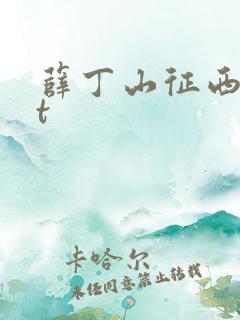 薛丁山征西
t
卡哈尔
未经同意禁止转载